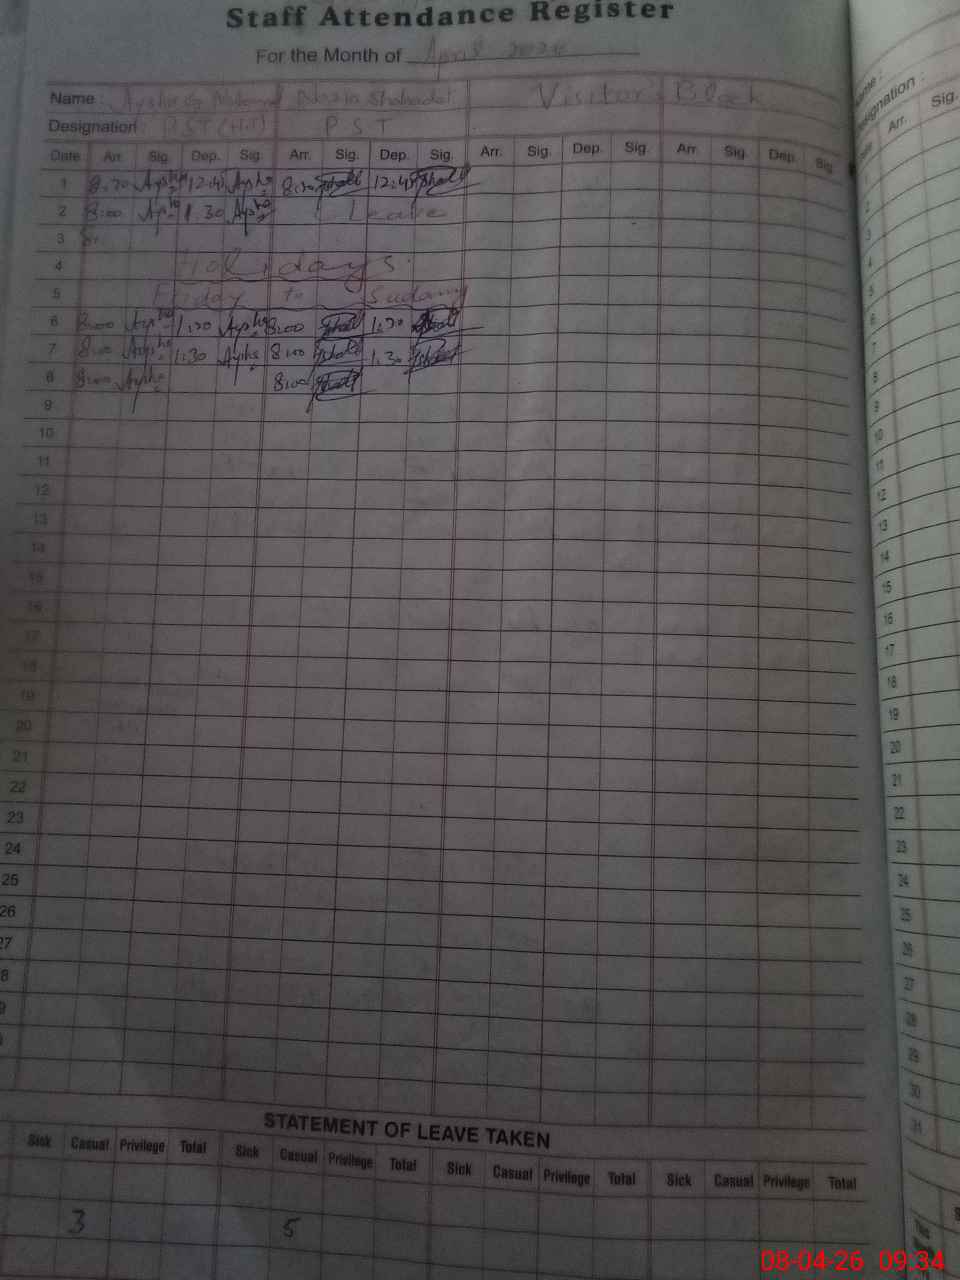 Staff Attendance Register
For the Month of April
Name : Nazia Shahadat Visitors Block
Designation : PST (H.T) P S T
Date Arr. Sig. Dep. Sig. Arr. Sig. Dep. Sig. Arr. Sig. Dep. Sig. Arr. Sig. Dep. Sig.
1 8:30 12:45 8:30 12:45
2 8:00 1:30 Leave
3 8:
4 Holidays.
5 Friday to
6 8:00 1:30 8:00 1:30
7 8:00 1:30 8:00 1:30
8 8:00 8:00
9
10
11
12
13
14
15
16
17
18
19
20
21
22
23
24
25
26
27
8
9
STATEMENT OF LEAVE TAKEN
Sick Casual Privilege Total Sick Casual Privilege Total Sick Casual Privilege Total Sick Casual Privilege Total
3 5
Arr. Sig.
2
3
4
5
6
7
8
9
10
11
12
13
14
15
16
17
18
19
20
21
22
23
24
25
26
27
28
29
30
31
08-04-26 09:34